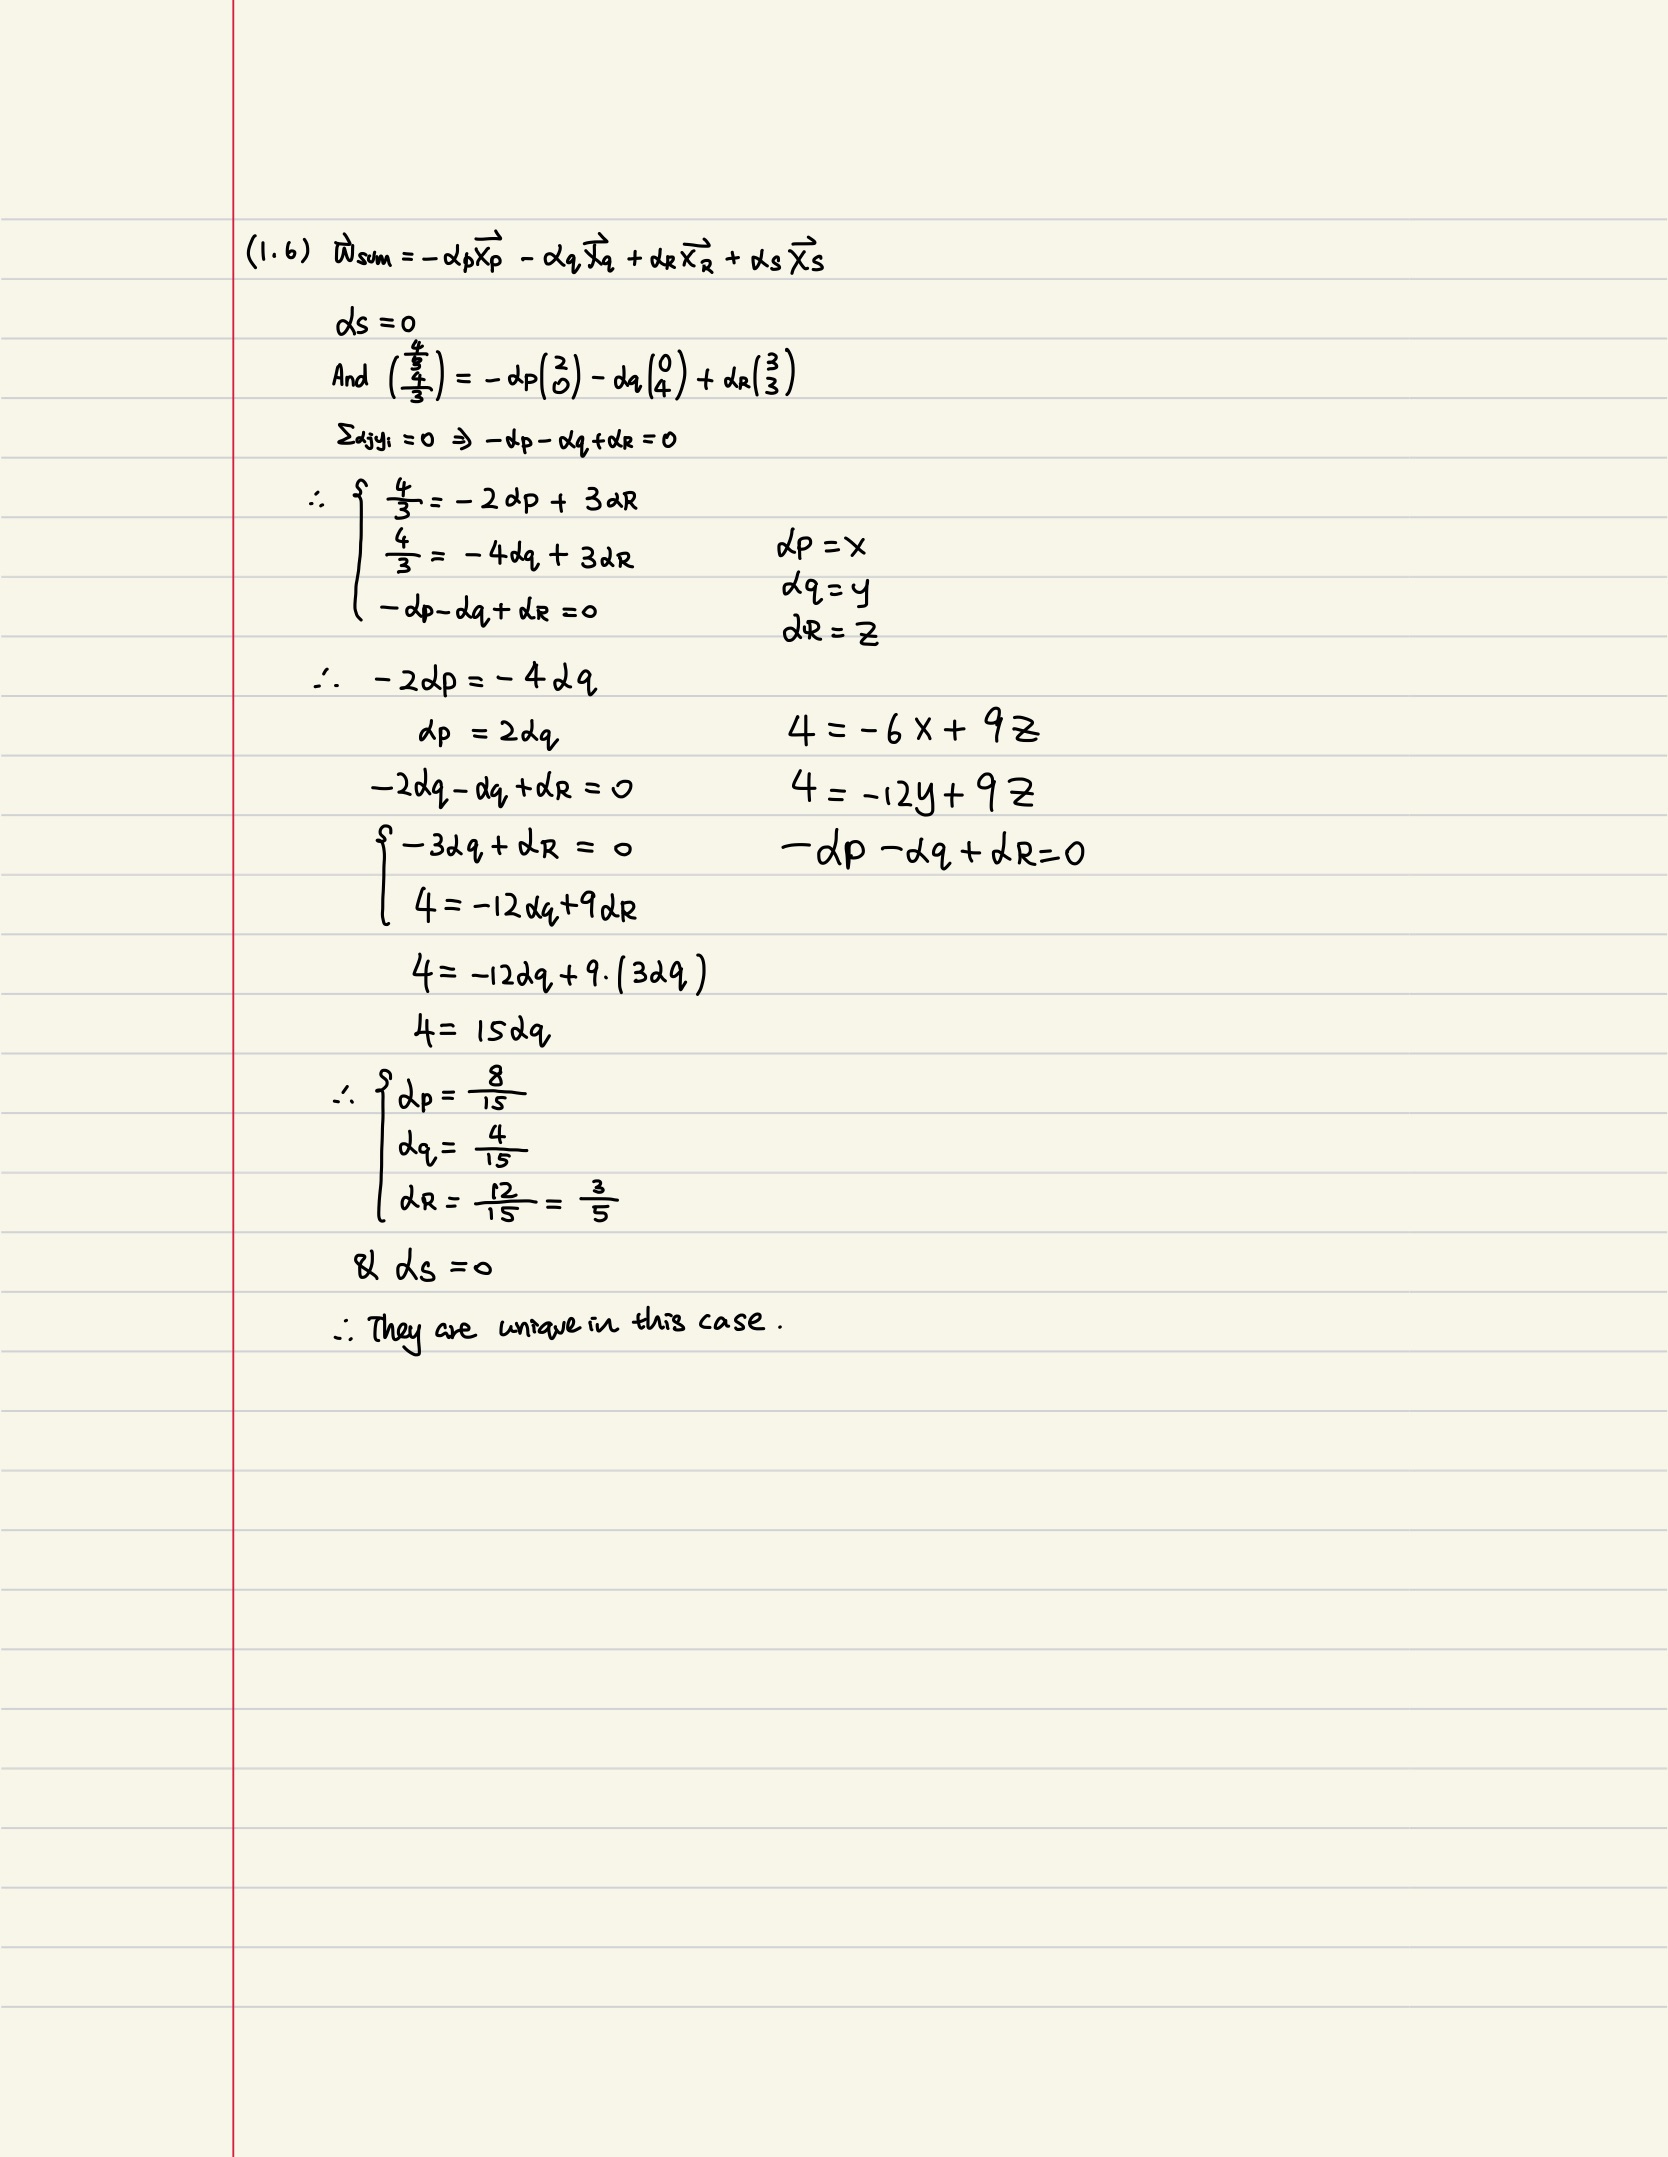 (1.6) w⃗sum = -αp x⃗p - αq x⃗q + αR x⃗R + αs x⃗s
αs = 0
And (4/3 4/3) = -αp(2 0) - αq(0 4) + αR(3 3)
Σαjyi = 0 ⇒ -αp - αq + αR = 0
∴ { 4/3 = -2αp + 3αR
4/3 = -4αq + 3αR
-αp - αq + αR = 0
αp = x
αq = y
αR = z
∴ -2αp = -4αq
αp = 2αq
-2αq - αq + αR = 0
{ -3αq + αR = 0
4 = -12αq + 9αR
4 = -12αq + 9·(3αq)
4 = 15αq
4 = -6x + 9z
4 = -12y + 9z
-αp - αq + αR = 0
∴ { αp = 8/15
αq = 4/15
αR = 12/15 = 3/5
& αs = 0
∴ They are unique in this case.